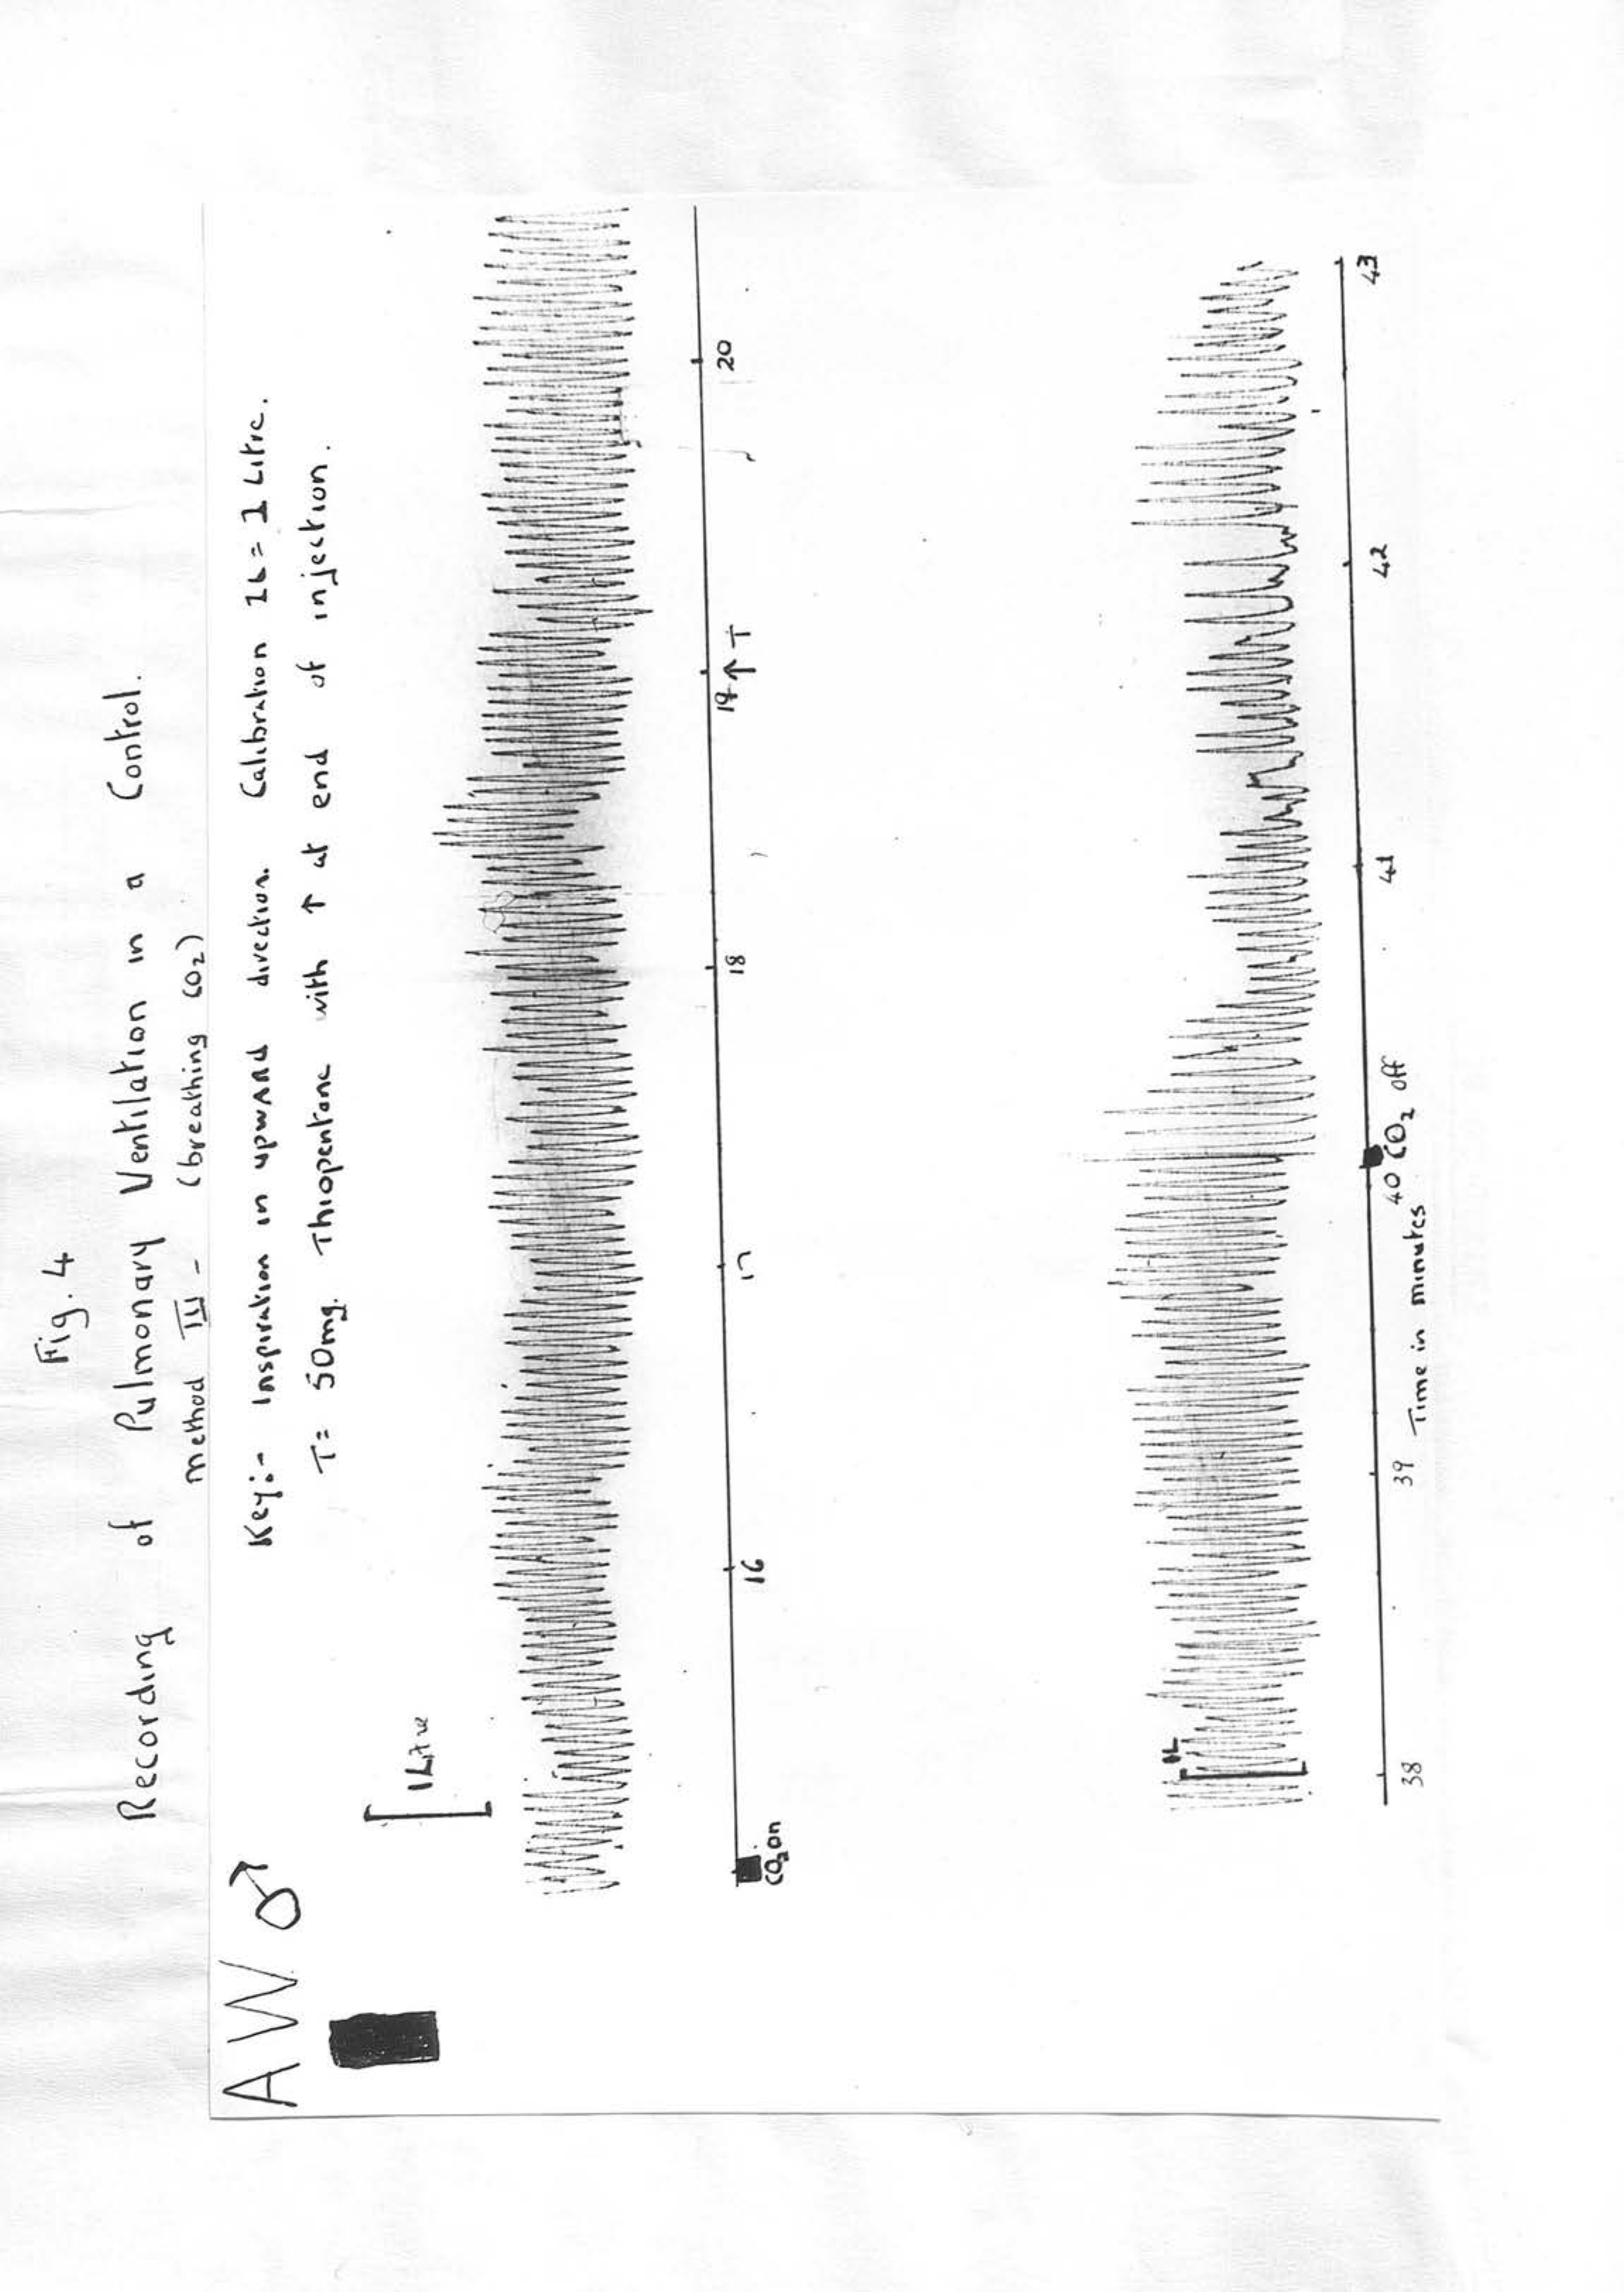 Fig. 4
Recording of Pulmonary Ventilation in a Control.
method III - (breathing CO2)
AW ♂
Key:- Inspiration in upwARd direction. Calibration 1L = 1 Litre.
T= 50mg. Thiopentone with ↑ at end of injection.
1 Litre
CO2 on 16 17 18 19 ↑ T 20
1L
38 39 40 CO2 off 41 42 43
Time in minutes